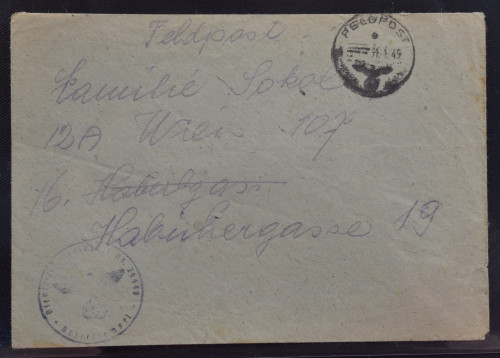 Feldpost
FELDPOST
Familie Sokol
12A Wien 107
16. Haberlgasse
Habichergasse 19